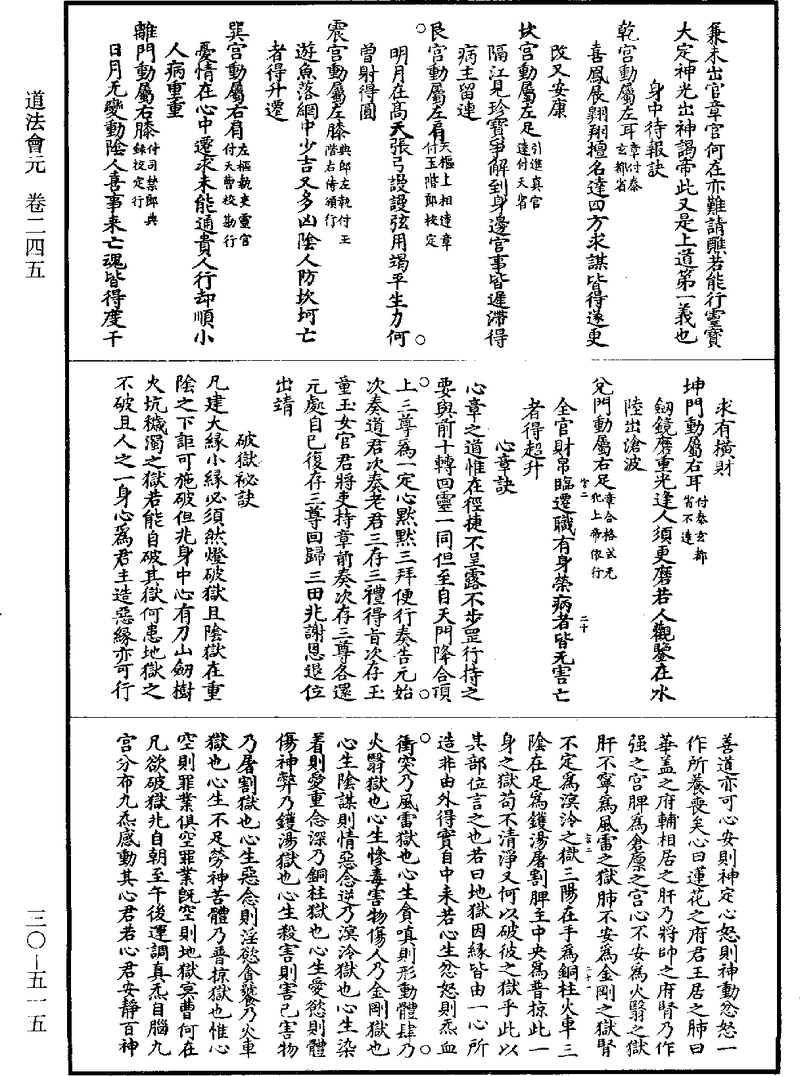 道法會元　卷二四五
兼未出官章官何在亦難請雖若能行靈寶
大定神光出神謁帝此又是上道第一義也
身中待報訣
乾宮動屬左耳章付泰玄都省
喜鳳展翺翔擅名達四方求謀皆得遂更
改又安康
坎宮動屬左足引進真官速付天省
隔江見珍寶爭解到身邊官事皆遲滯得
病主留連
艮宮動屬左肩天樞上相達章付玉階郎校定
明月在高天張弓謾謾弦用竭平生力何
曾射得圓
震宮動屬左膝典郎左執付玉階右侍頒行
遊魚落網中少吉又多凶陰人防坎坷亡
者得升遷
巽宮動屬右肩左樞執吏靈官付天曹校勘行
憂情在心中遷求未能通貴人行却順小
人病重重
離門動屬右膝付司禁郎典錄校定行
日月无變動陰人喜事來亡魂皆得度干
求有橫財
坤門動屬右耳付泰玄都省不達
劔鏡磨重光逢人須更磨若人觀鑒在水
陸出滄波
兊門動屬右足章合格式无犯上帝依行
全官財帛臨遷職有身榮病者皆无害亡
者得超升
心章訣
心章之道惟在徑捷不呈露不步罡行持之
要與前十轉回靈一同但至自天門降合頂
上三尊爲一定心默默三拜便行奏告元始
次奏道君次奏老君三存三禮得旨次存玉
童玉女官君將吏持章前奏次存三尊各還
元處自已復存三尊回歸三田兆謝恩退位
出靖
破獄祕訣
凡建大緣小緣必須然燈破獄且陰獄在重
陰之下詎可施破但兆身中心有刀山劔樹
火坑穢濁之獄若能自破其獄何患地獄之
不破且人之一身心爲君主造惡緣亦可行
善道亦可心安則神定心怒則神動忽怒一
作所養喪矣心曰蓮花之府君王居之肺曰
華蓋之府輔相居之肝乃將帥之府腎乃作
强之宮脾爲倉廩之宮心不安爲火翳之獄
肝不寧爲風雷之獄肺不安爲金剛之獄腎
不定爲溟泠之獄三陽在手爲銅柱火車三
陰在足爲鑊湯屠割脾主中央爲普掠此一
身之獄苟不清淨又何以破彼之獄乎此以
其部位言之也若曰地獄因緣皆由一心所
造非由外得實自中来若心生忿怒則炁血
衝突乃風雷獄也心生貪嗔則形動體肆乃
火翳獄也心生慘毒害物傷人乃金剛獄也
心生陰謀則情惡念逆乃溟泠獄也心生染
着則愛重念深乃銅柱獄也心生愛慾則體
傷神弊乃鑊湯獄也心生殺害則害己害物
乃屠割獄也心生惡念則淫慾貪饕乃火車
獄也心生不足勞神苦體乃普掠獄也惟心
空則罪業俱空罪業既空則地獄㝠曹何在
凡欲破獄兆自朝至午後運調真炁自腦九
宮分布九炁感動其心君若心君安靜百神
三〇—五一五